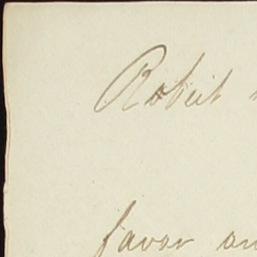 Robert
favor an